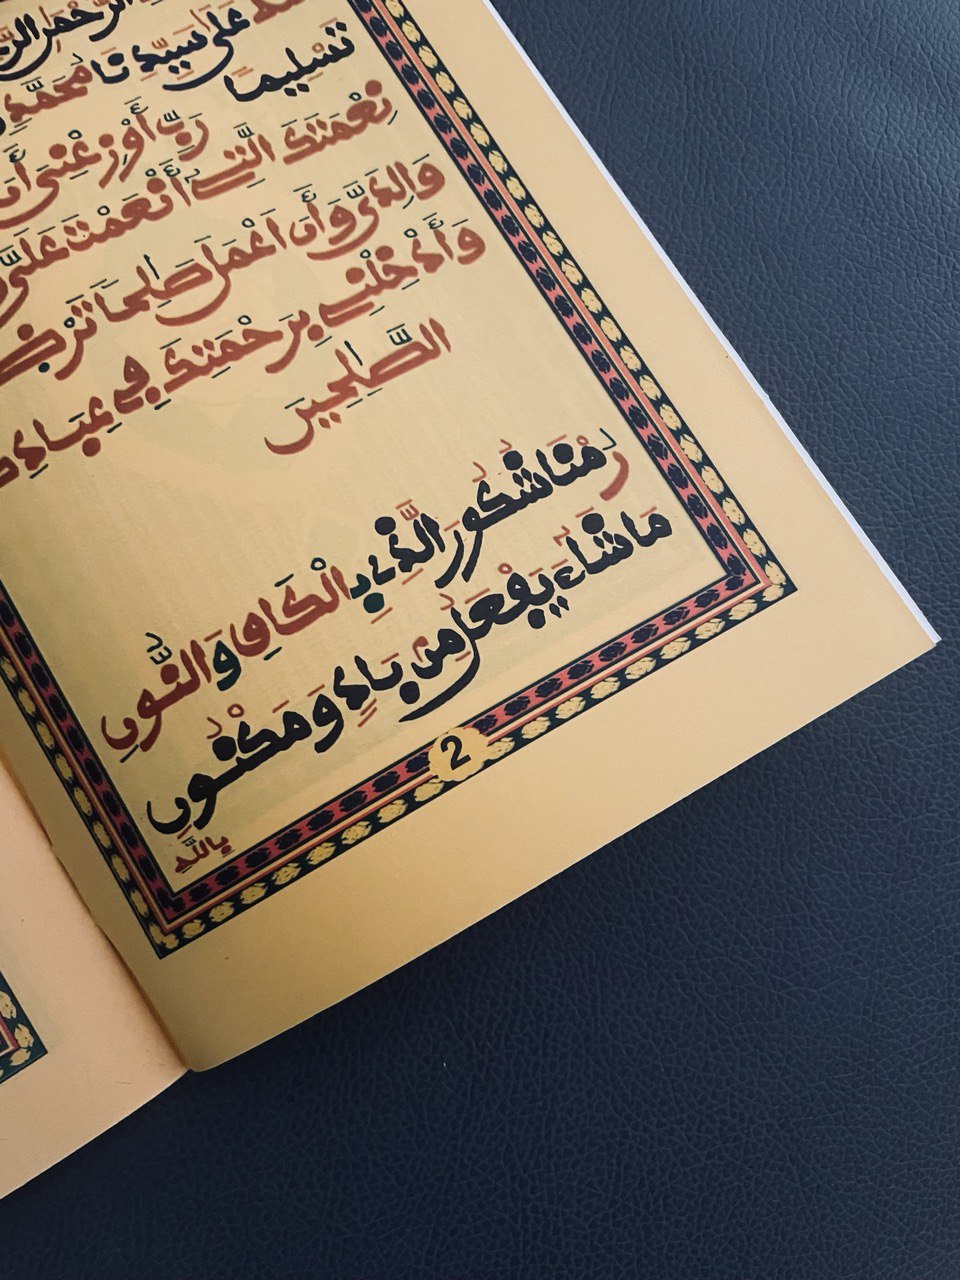 الرَّحْمَٰنِ
عَلَىٰ سَيِّدِنَا مُحَمَّدٍ
تَسْلِيمًا
رَبِّ أَوْزِعْنِى أَنَ
نِعْمَتَكَ الَّتِى أَنْعَمْتَ عَلَىَّ
وَالِدَىَّ وَأَنَ اَعْمَلَ صَٰلِحًا تَرْضَ
وَأَدْخِلْنِى بِرَحْمَتِكَ فِى عِبَادِكَ
الصَّٰلِحِينَ
رُمْنَا شُكُورَ الَّذِى بِالْكَافِ وَالنُّونِ
مَا شَآءَ يَفْعَلُ مِنْ بَادٍ وَمَكْنُونِ
بِاللَّهِ
2